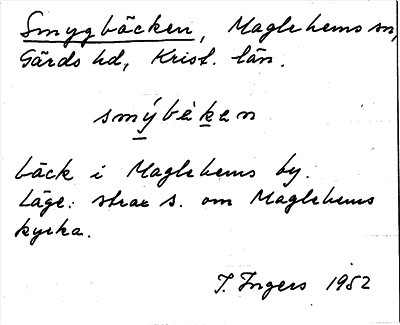 Smygbäcken, Maglehems sn,
Gärds hd, Krist. län.
smýbèken
bäck i Maglehems by.
Läge: strax s. om Maglehems
kyrka.
I. Ingers 1952